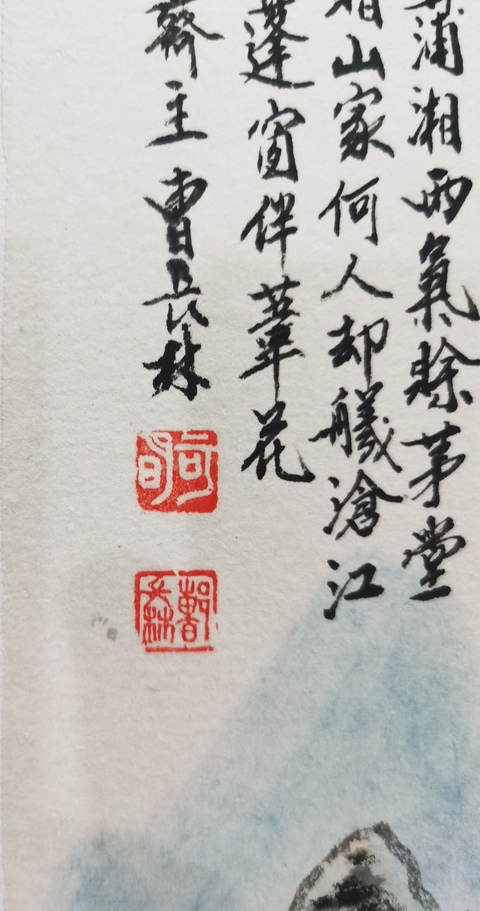 浦湘雨氣賒茅堂
山家何人却艤滄江
蓬窗伴葦花
齋主曹長林